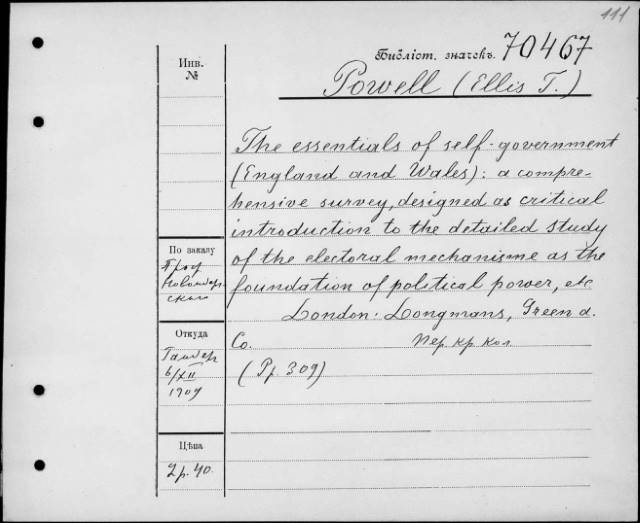 111
Библіот. значекъ. 70467
Powell (Ellis T.)
Инв.
№
The essentials of self-government
(England and Wales): a compre-
hensive survey, designed as critical
introduction to the detailed study
of the electoral mechanisme as the
foundation of political power, etc
London: Longmans, Green a.
Co. пер. кр. кол
(Pp. 309)
По заказу
Проф
Откуда
6/XII
1909
Цѣна
2 р. 40.